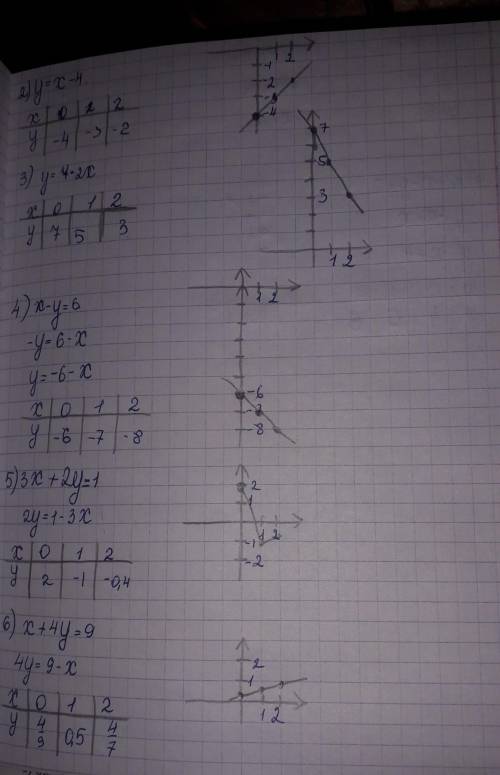 2) y=x-4
x 0 1 2
y -4 -3 -2
-1
-2
-4
3) y=7-2x
x 0 1 2
y 7 5 3
7
5
3
1 2
4) x-y=6
-y=6-x
y=-6-x
x 0 1 2
y -6 -7 -8
1 2
-6
-7
-8
5) 3x+2y=1
2y=1-3x
x 0 1 2
y 2 -1 -0,4
2
1
1 2
-1
-2
6) x+4y=9
4y=9-x
x 0 1 2
y 4/9 0,5 4/7
2
1
1 2